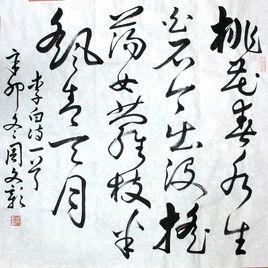 桃花春水生
白石今出没摇
荡女萝枝半
青天月
李白诗一首
辛卯冬周文彰